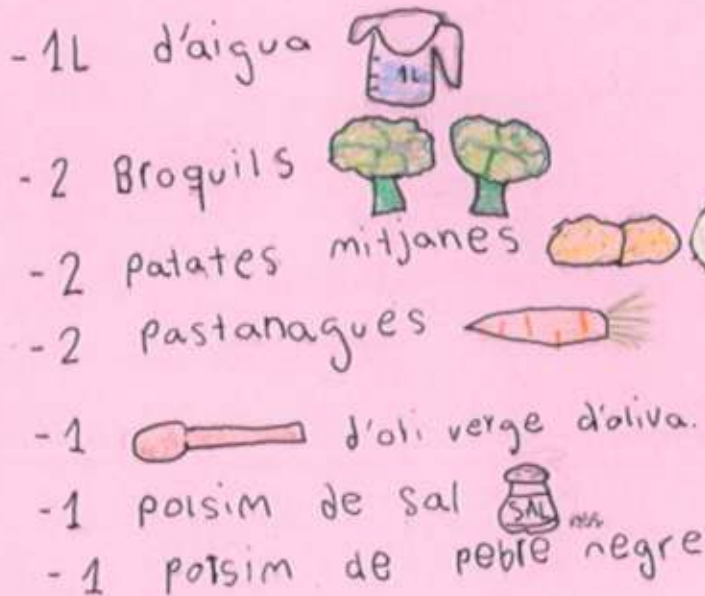 -1L d'aigua 1L
-2 Broquils
-2 patates mitjanes
-2 pastanagues
-1 d'oli verge d'oliva.
-1 polsim de sal SAL
-1 polsim de pebre negre